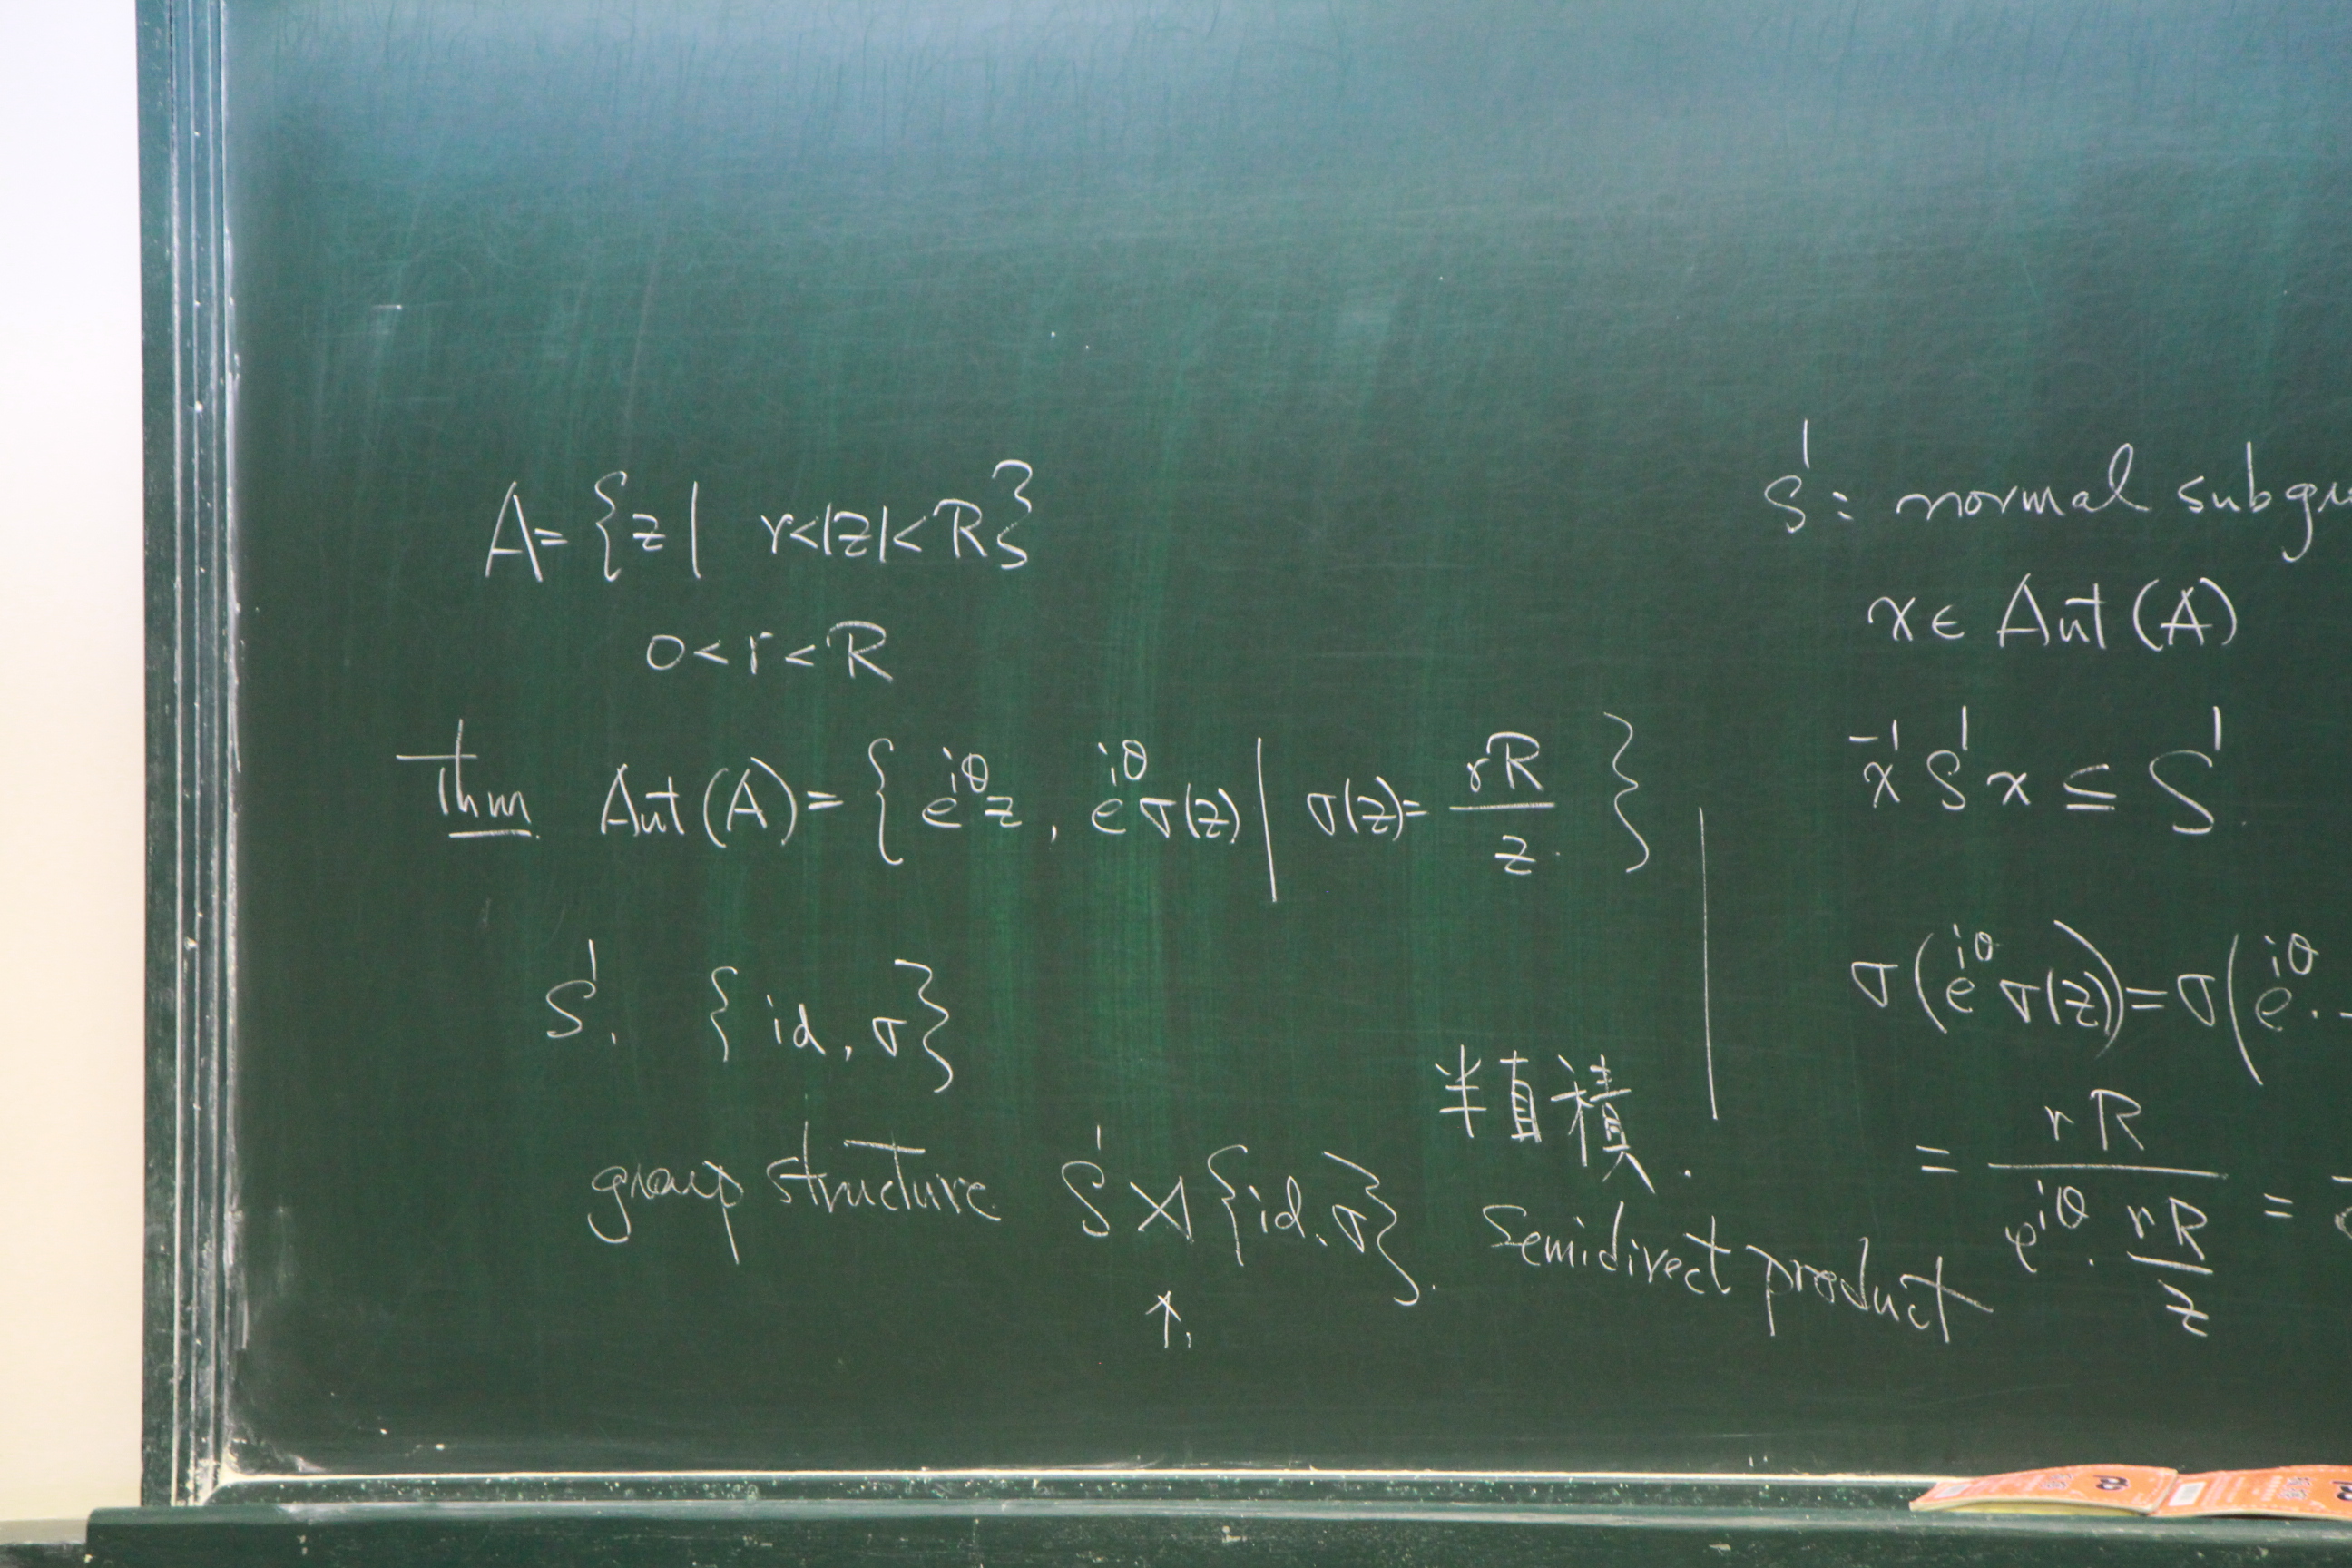 A={z| r<|z|<R}
0<r<R
Thm. Aut(A)={e^{iθ}z, e^{iθ}σ(z)| σ(z)=rR/z.}
S^1. {id, σ}
半直積.
group structure S^1⋊{id, σ}. semidirect product
↑.
S^1: normal subgr
x∈Aut(A)
x^{-1}S^1x⊆S^1.
σ(e^{iθ}σ(z))=σ(e^{iθ}.
=rR/(e^{iθ}.rR/z)=